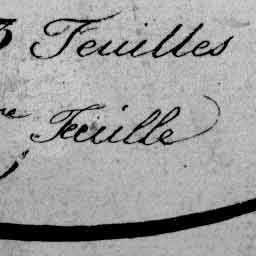 3 Feuilles
re Feuille